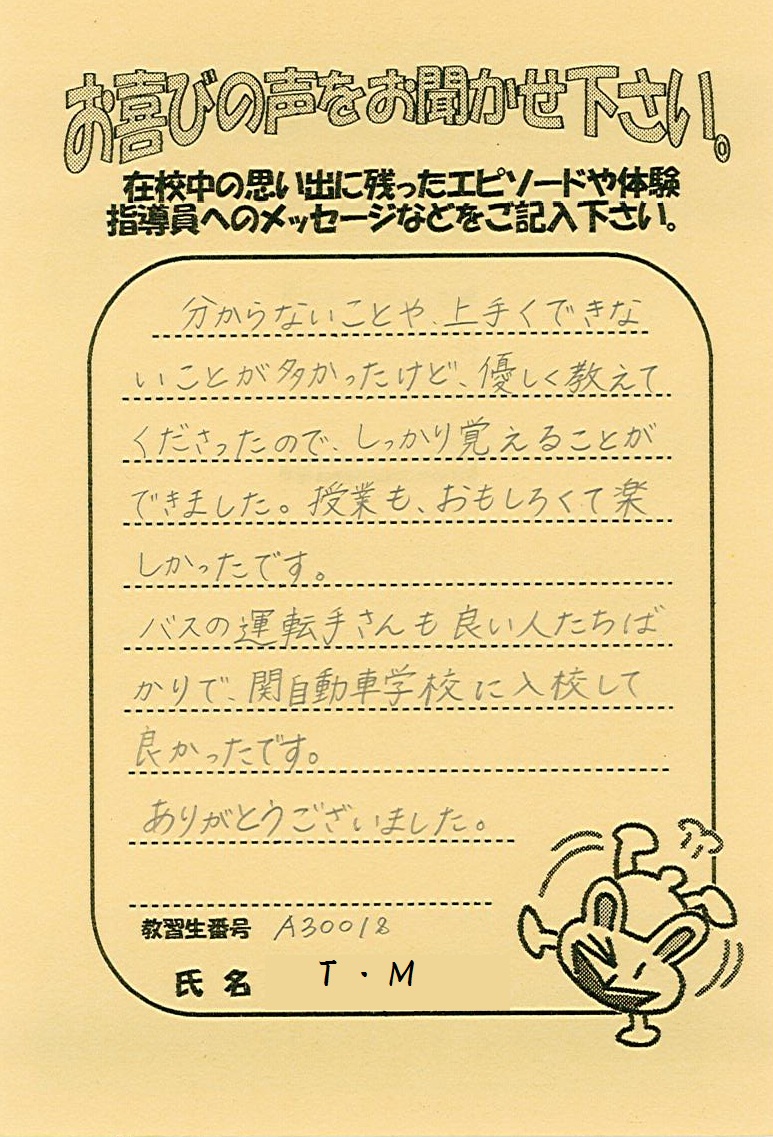 お喜びの声をお聞かせ下さい。
在校中の思い出に残ったエピソードや体験
指導員へのメッセージなどをご記入下さい。
分からないことや、上手くできな
いことが多かったけど、優しく教えて
くださったので、しっかり覚えることが
できました。授業も、おもしろくて楽
しかったです。
バスの運転手さんも良い人たちば
かりで、関自動車学校に入校して
良かったです。
ありがとうございました。
教習生番号 A30018
氏名 T・M